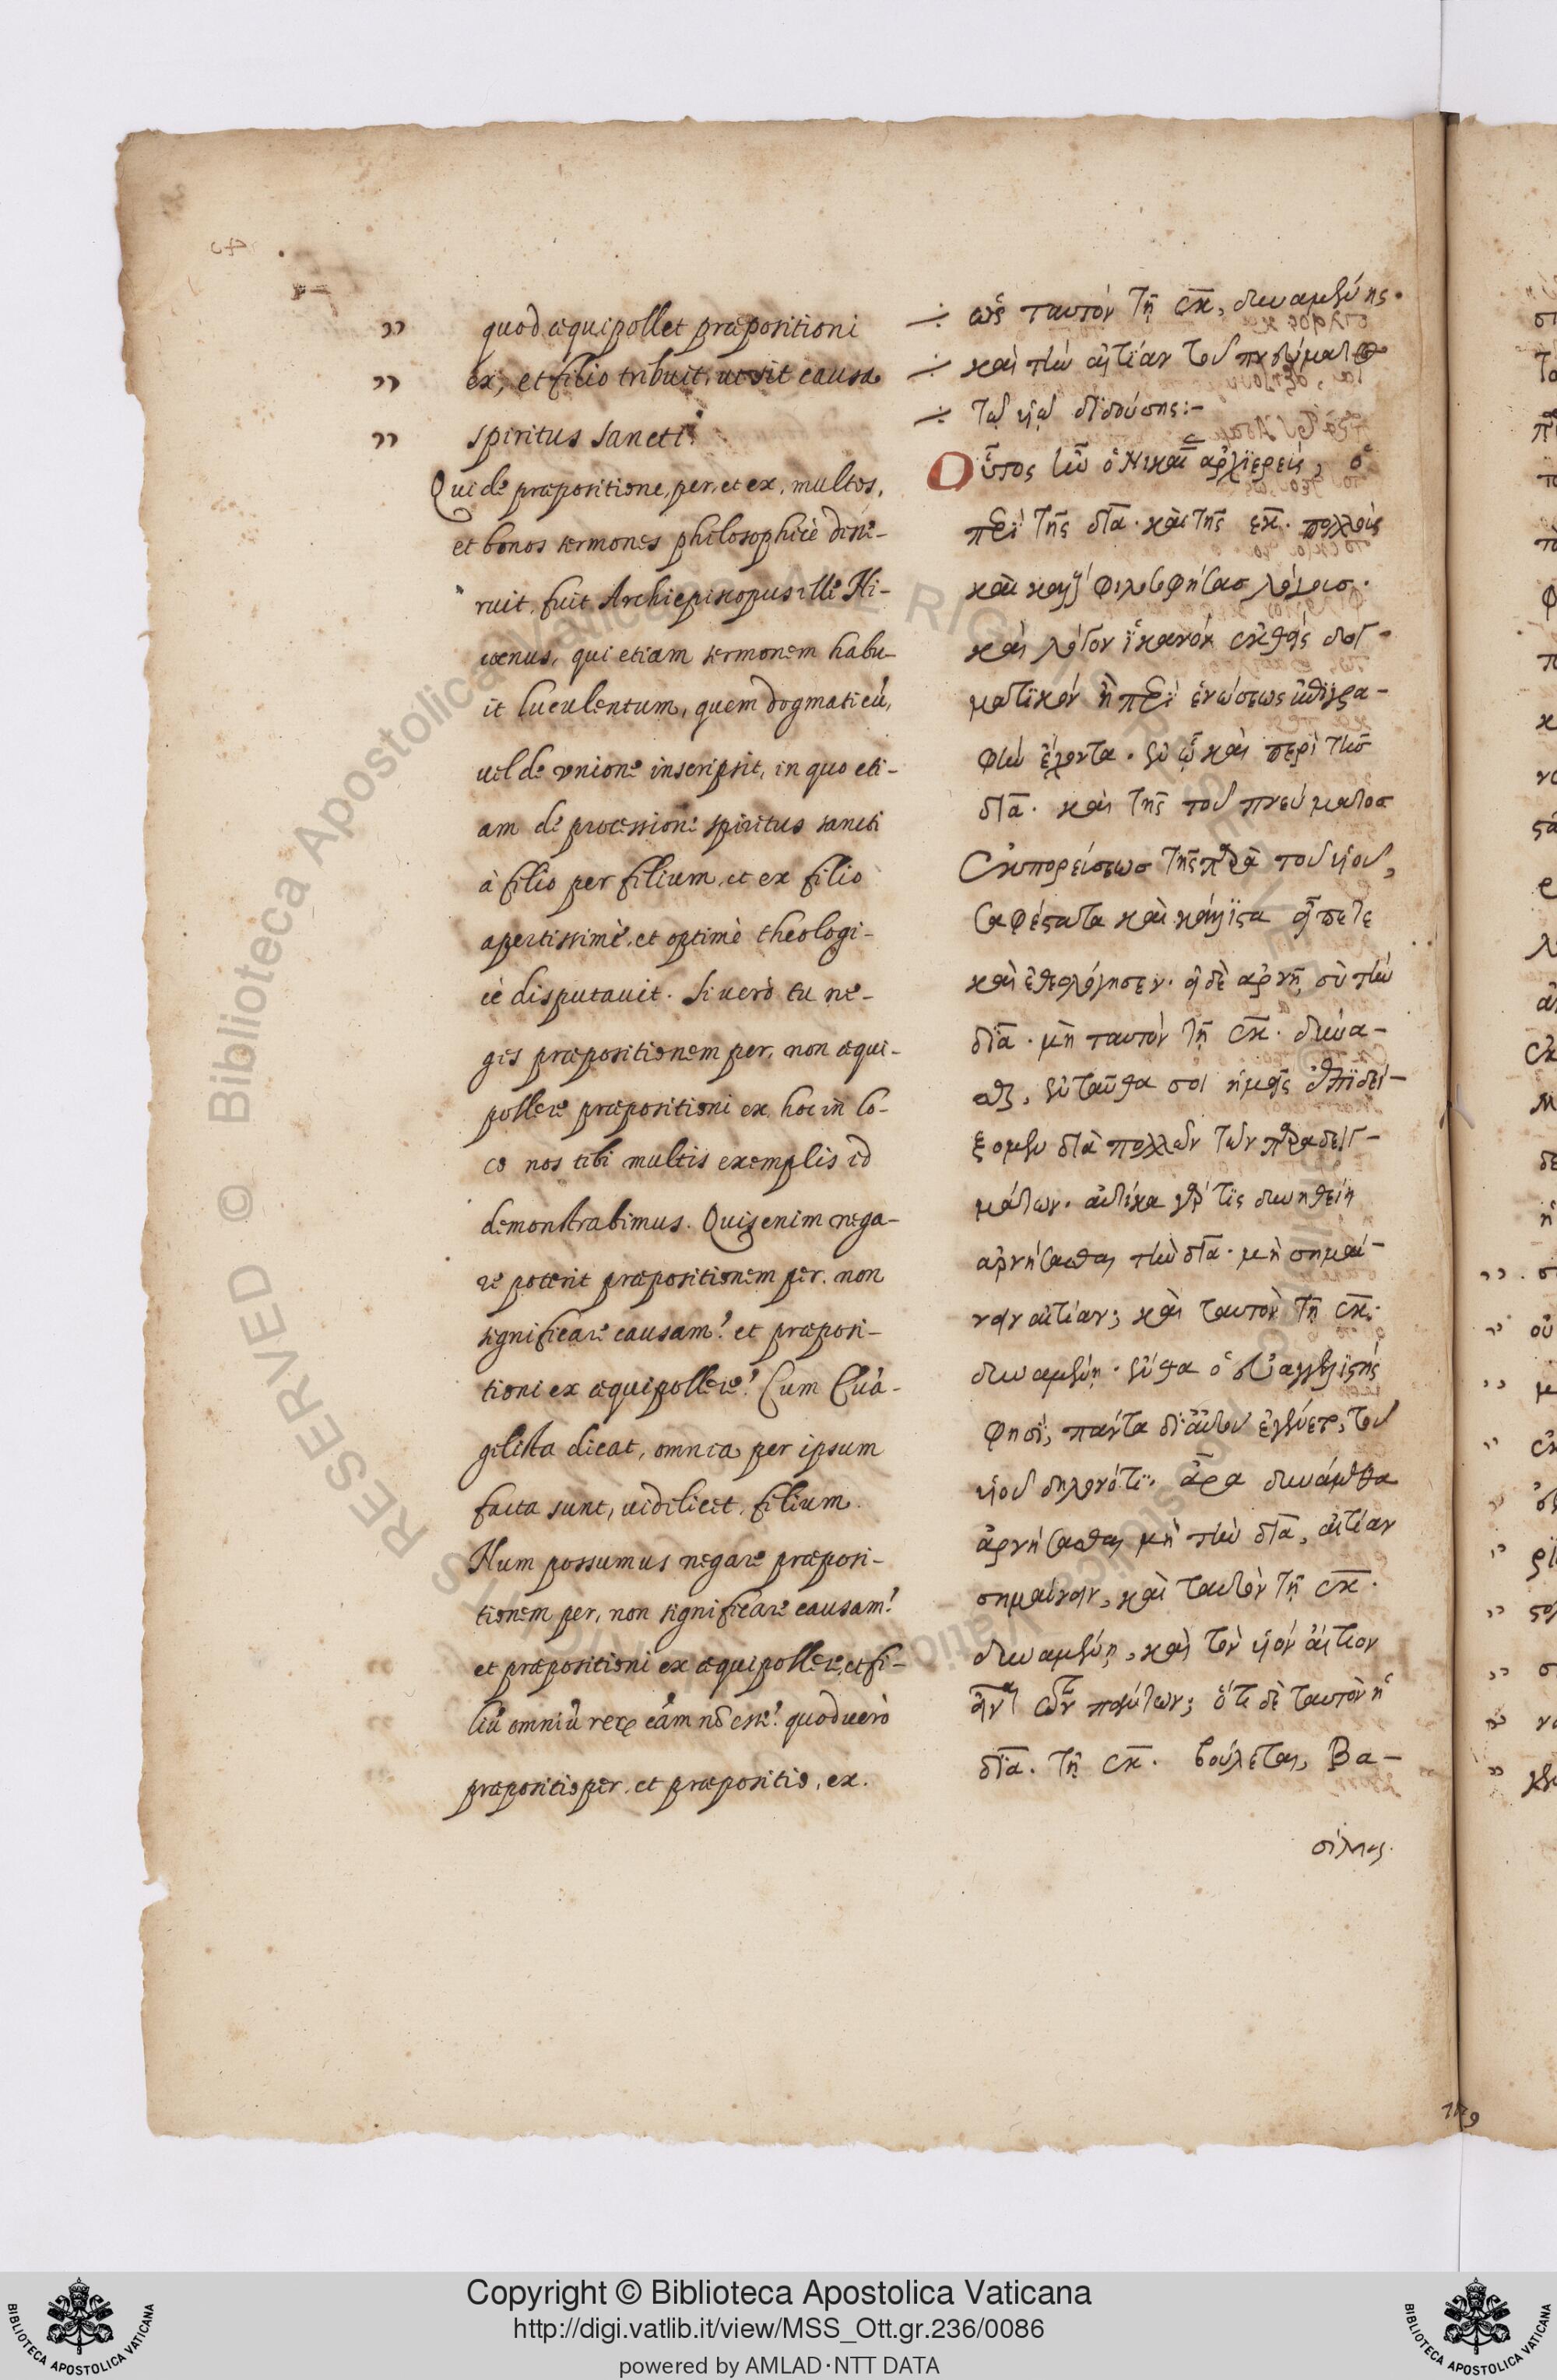 quod æquipollet præpositioni
ex, et filio tribuit, ut sit causa
spiritus sancti?
Qui de præpositione, per, et ex, multos,
et bonos sermones philosophicè disse-
ruit, fuit Archiepiscopus ille Ni-
cænus, qui etiam sermonem habu-
it luculentum, quem dogmaticũ,
uel de unione inscripsit, in quo eti-
am de processione spiritus sancti
à filio per filium, et ex filio
apertissimè, et optimè theologi-
cè disputauit. Si uerò tu ne-
ges præpositionem per, non æqui-
pollere præpositioni ex, hoc in lo-
co nos tibi multis exemplis id
demonstrabimus. Quis enim nega-
re poterit præpositionem per, non
significare causam? et præposi-
tioni ex æquipollere? Cum Euã-
gelista dicat, omnia per ipsum
facta sunt, uidelicet, filium.
Num possumus negare præposi-
tionem per, non significare causam?
et præpositioni ex æquipollere, et fi-
liũ omniũ rerũ cãm nõ esse? quod uerò
præpositio per, et præpositio, ex.
ὡς ταυτὸν τῇ ἐκ, δυναμένης.
καὶ τὴν αἰτίαν τοῦ πνεύματος
τῷ υἱῷ διδούσης:-
Οὗτος ἦν ὁ Νικαίας ἀρχιερεὺς, ὁ
περὶ τῆς διὰ. καὶ τῆς ἐκ. πολλοὺς
καὶ καλοὺς φιλοσοφήσας λόγους.
καὶ λόγον ἱκανὸν ἐκθεὶς δογ-
ματικὸν ἢ περὶ ἑνώσεως ἐπιγρα-
φὴν ἔχοντα. ἐν ᾧ καὶ περὶ τῆς
διὰ. καὶ τῆς τοῦ πνεύματος
ἐκπορεύσεως τῆς παρὰ τοῦ υἱοῦ,
σαφέστατα καὶ κάλλιστα εἶπέ τε
καὶ ἐθεολόγησεν. εἰ δὲ ἀρνῇ σὺ τὴν
διὰ. μὴ ταυτὸν τῇ ἐκ. δύνα-
σθαι, ἐνταῦθα σοι ἡμεῖς ἐπιδεί-
ξομεν διὰ πολλῶν τῶν παραδειγ-
μάτων. αὐτίκα γάρ τις δυνηθείη
ἀρνήσασθαι τὴν διὰ. μὴ σημαί-
νειν αἰτίαν; καὶ ταυτὸν τῇ ἐκ.
δυναμένη. ἔνθα ὁ εὐαγγελιστὴς
φησὶ, πάντα δι' αὐτοῦ ἐγένετο, τοῦ
υἱοῦ δηλονότι. ἆρα δυνάμεθα
ἀρνήσασθαι μὴ τὴν διὰ, αἰτίαν
σημαίνειν, καὶ ταυτὸν τῇ ἐκ.
δυναμένη, καὶ τὸν υἱὸν αἴτιον
εἶναι τῶν πάντων; ὅτι δὲ ταυτὸν ἡ
διὰ. τῇ ἐκ. βούλεται, Βα-
σίλειος
Copyright © Biblioteca Apostolica Vaticana
http://digi.vatlib.it/view/MSS_Ott.gr.236/0086
powered by AMLAD·NTT DATA